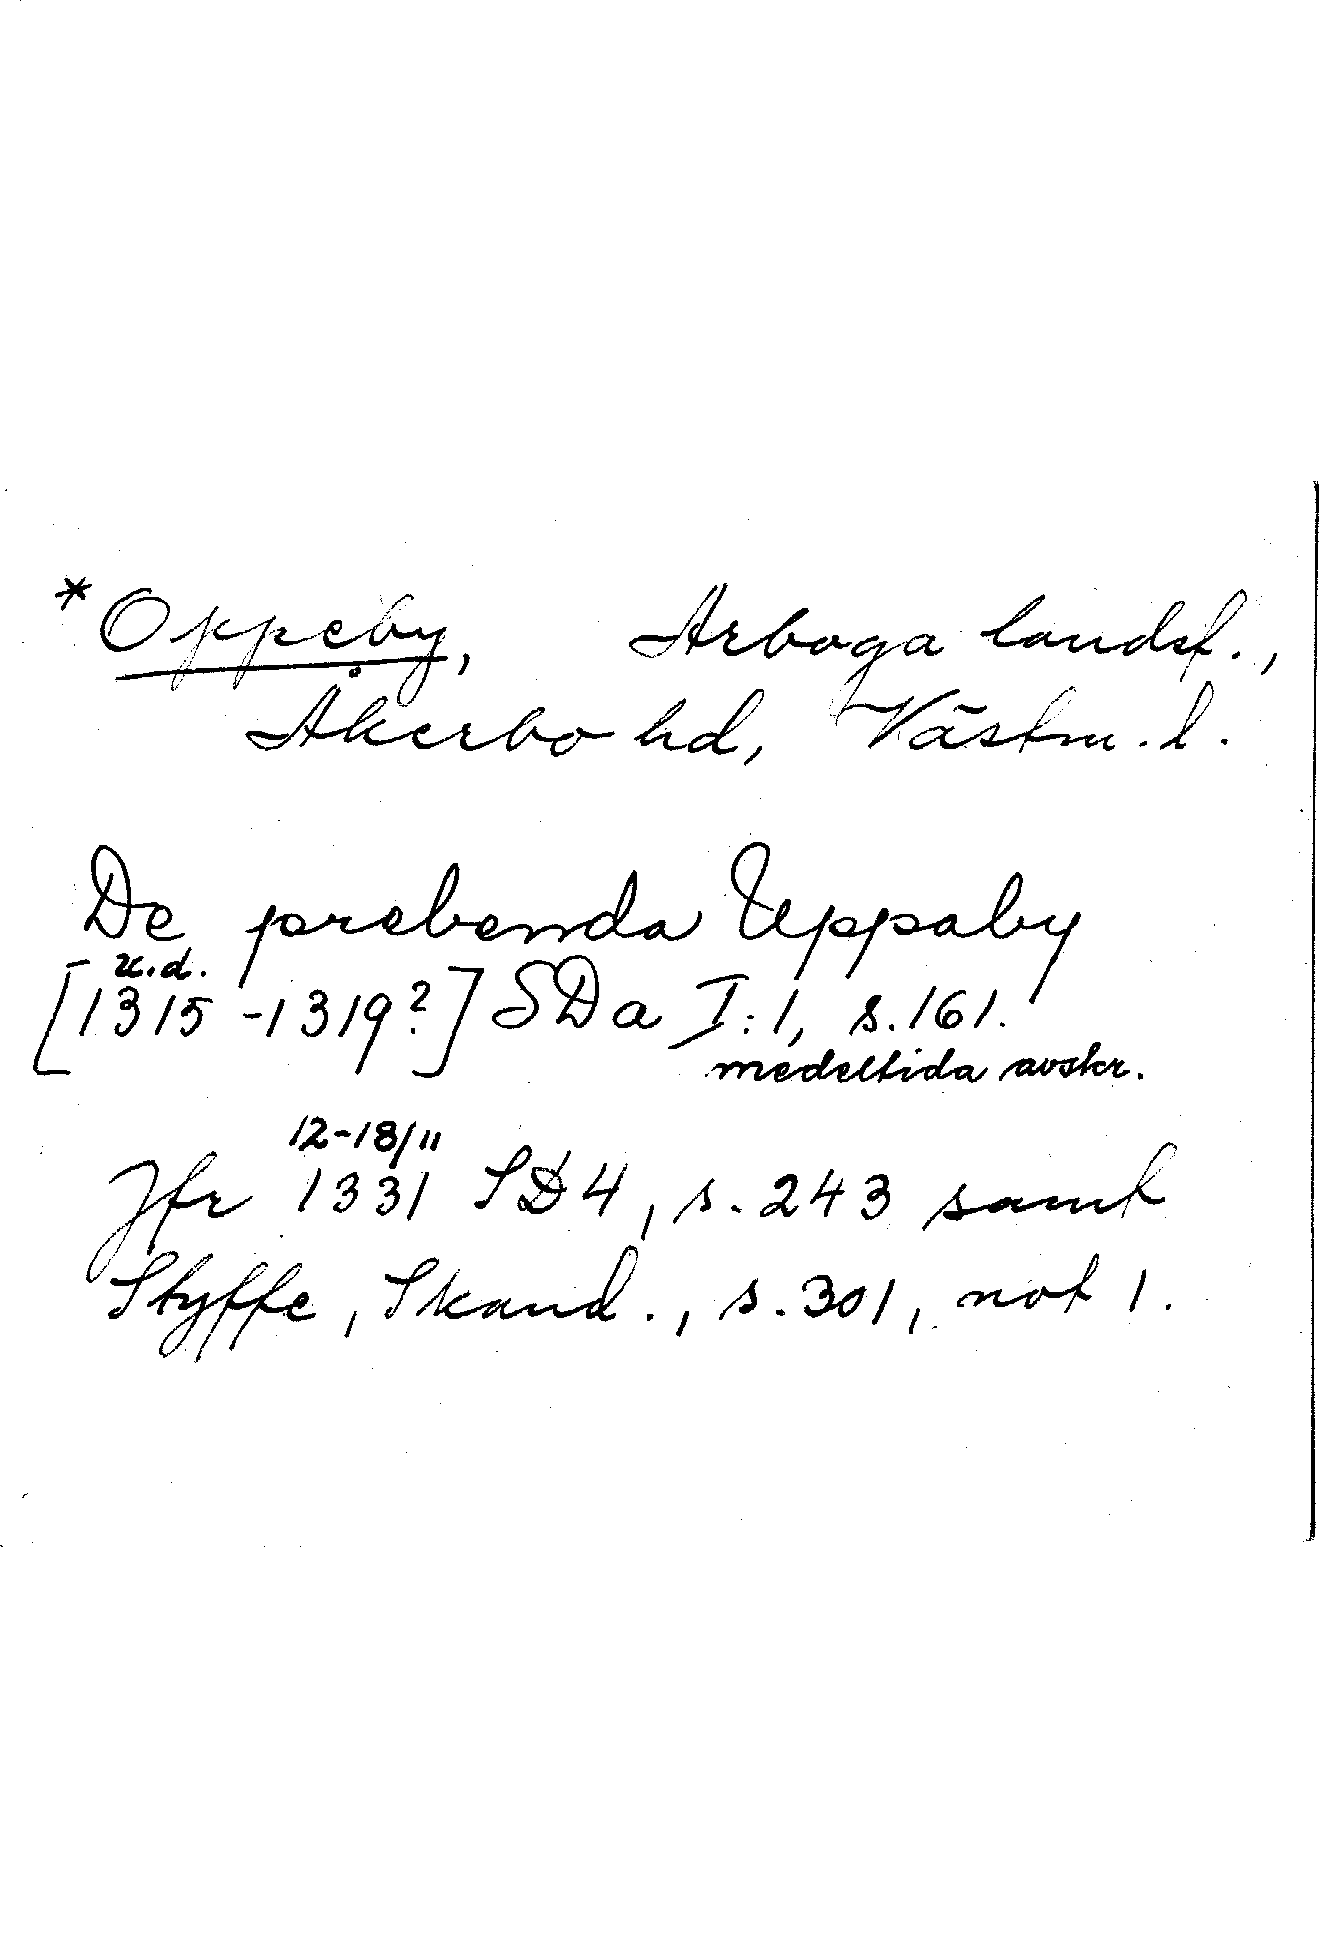 *Oppeby, Arboga landsf.,
Åkerbo hd, Västm. l.
De prebenda Uppaby
u.d.
[1315-1319?] SDa I:1, s.161.
medeltida avskr.
12-18/11
Jfr 1331 SD4, s.243 samt
Styffe, Skand., s.301, not 1.